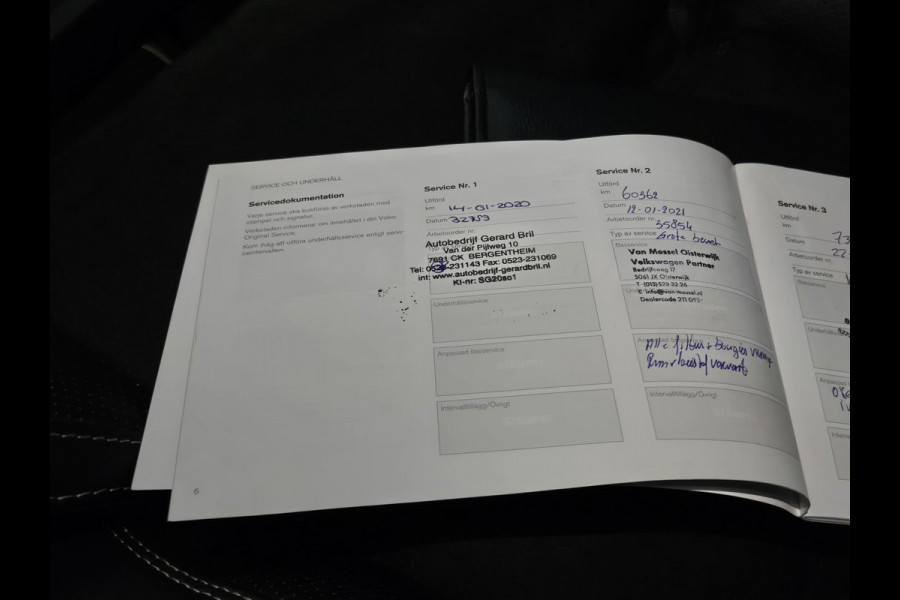 SERVICE OCH UNDERHÅLL
Servicedokumentation
Varje service ska bokföras av verkstaden med
stämpel och signatur.
Verkstaden informerar om innehållet i din Volvo
Original Service.
Kom ihåg att utföra underhållsservice enligt serv-
6
Service Nr. 1
Utförd
km 14-01-2020
Datum 32753
Arbetsorder nr.
Autobedrijf Gerard Bril
Van der Pijlweg 10
7691 CK BERGENTHEIM
Tel: 0523-231143 Fax: 0523-231069
int: www.autobedrijf-gerardbril.nl
KI-nr: SG20so1
Underhållsservice
Anpassad Basservice
Intervalltillägg/Övrigt
Service Nr. 2
Utförd
km 60362
Datum 12-01-2021
Arbetsorder nr. 35854
Typ av service Grote beurt
Basservice
Van Mossel Oisterwijk
Volkswagen Partner
Bedrijfsweg 17
5061 JX Oisterwijk
T (013) 529 22 26
E info@van-mossel.nl
Dealercode 211
Alle filters + bougies
Remvloeistof
Intervalltillägg/Övrigt
Service Nr. 3
Utförd
km 73
Datum 22
Arbetsorder nr.
Typ av service
Basservice
Anpassad